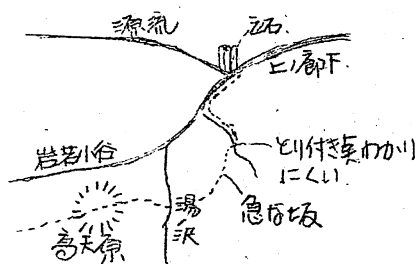 源流
立石
上ノ廊下
岩苔小谷
とり付き点わかり
にくい
湯沢
急な坂
高天原